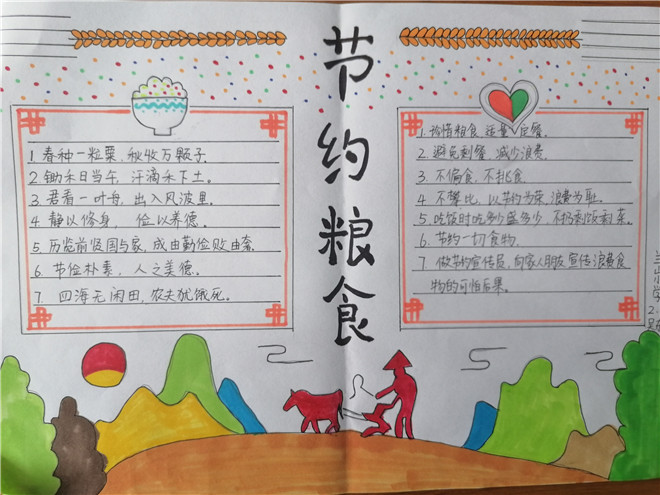 节约粮食
1. 春种一粒粟,秋收万颗子.
2. 锄禾日当午,汗滴禾下土。
3. 君看一叶舟,出入风波里。
4 静以修身,俭以养德。
5. 历览前贤国与家,成由勤俭败由奢.
6. 节俭朴素,人之美德。
7. 四海无闲田,农夫犹饿死。
1. 珍惜粮食 适量 定餐.
2. 避免剩餐,减少浪费.
3. 不偏食,不挑食
4. 不攀比,以节约为荣,浪费为耻.
5. 吃饭时吃多少盛多少,不扔剩饭剩菜.
6. 节约一切食物.
7. 做节约宣传员,向家人朋友宣传浪费食
物的可怕后果.